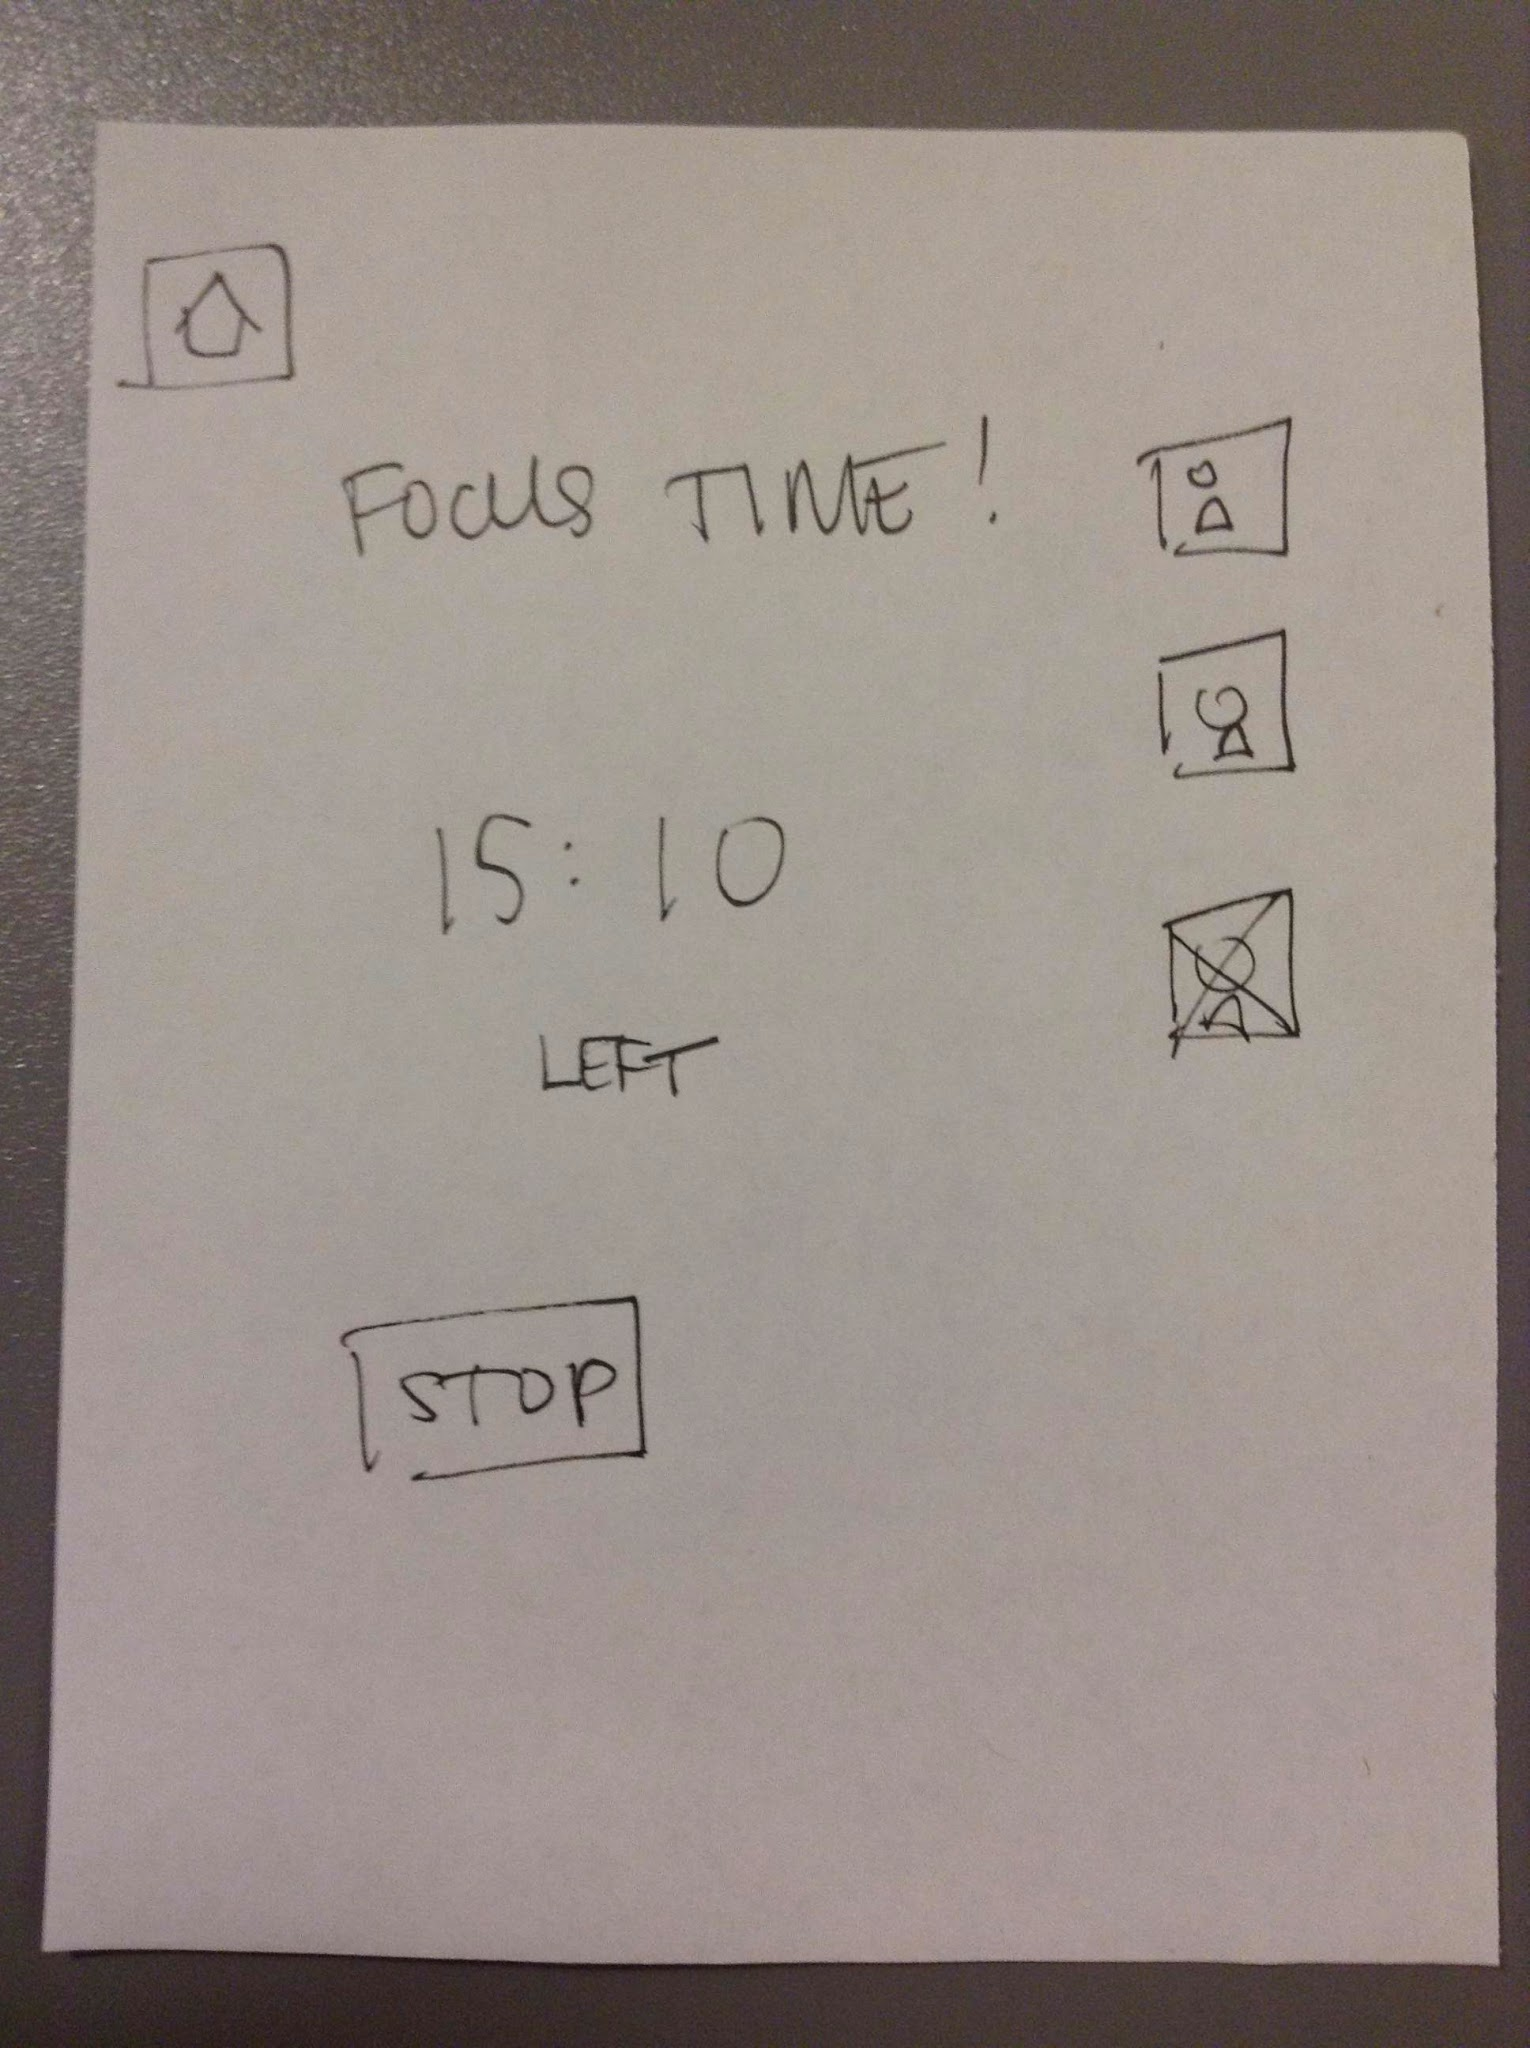 FOCUS TIME!
15:10
LEFT
STOP